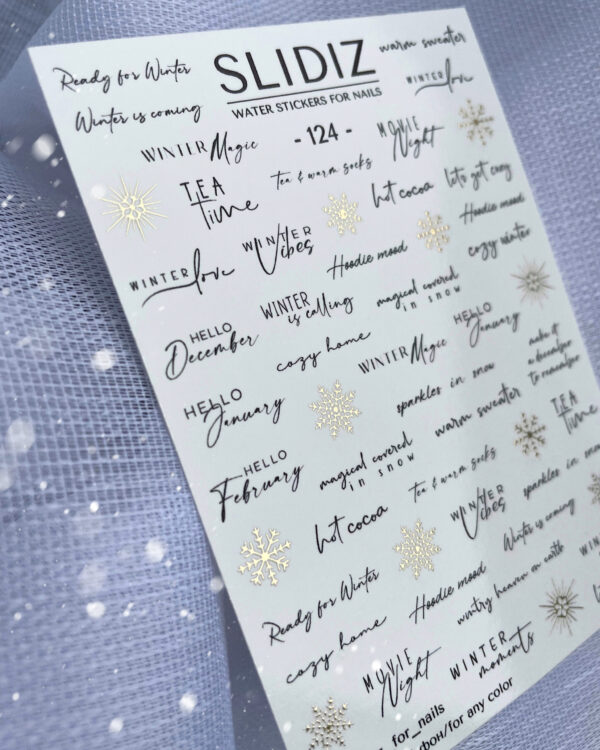 Ready for Winter
SLIDIZ
warm sweater
WATER STICKERS FOR NAILS
Winter is coming
WINTER love
WINTER Magic
- 124 -
MOVIE
Night
TEA
Time
Tea & warm socks
hot cocoa
lets get cozy
Hoodie mood
WINTER love
WINTER
Vibes
Hoodie mood
cozy winter
HELLO
December
WINTER
is calling
magical covered
in snow
HELLO
January
cozy home
WINTER Magic
make it
a december
to remember
HELLO
January
sparkles in snow
TEA
Time
HELLO
February
magical covered
in snow
warm sweater
Tea & warm socks
hot cocoa
WINTER
Vibes
sparkles in snow
Ready for Winter
Hoodie mood
Winter is coming
cozy home
wintry heaven on earth
MOVIE
Night
WINTER
moments
for_nails
фон/for any color